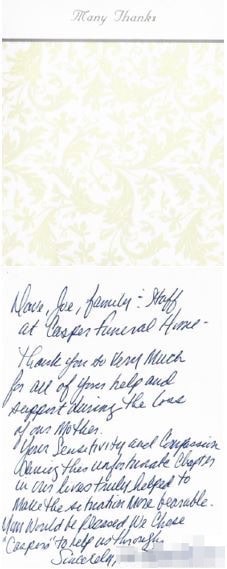 Many Thanks
Dave, Joe, family & Staff
at Casper Funeral Home-
Thank you so Very Much
for all of your help and
support during the loss
of our Mother.
Your Sensitivity and Compassion
during this unfortunate Chapter
in our lives truly helped to
Make the situation More bearable.
Mom Would be pleased We Chose
"Caspers" to help us through.
Sincerely,